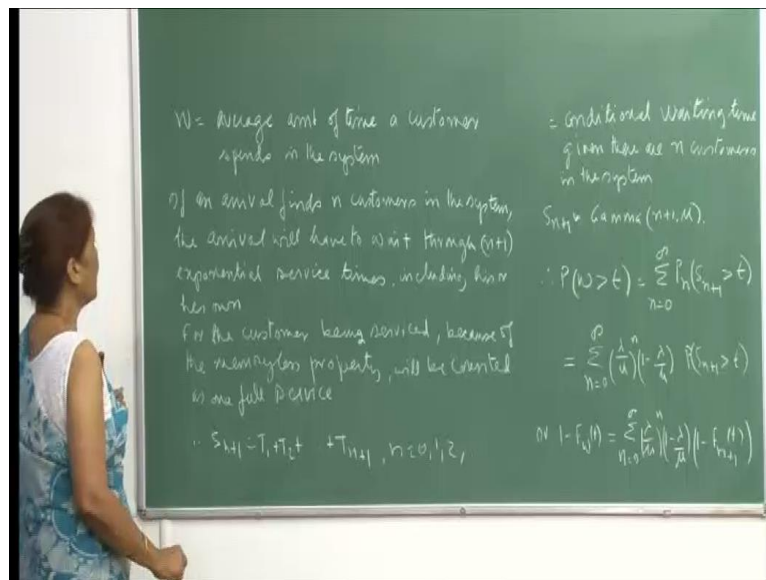 W = average amt of time a customer
spends in the system
If an arrival finds n customers in the system,
the arrival will have to wait through (n+1)
exponential service times, including his or
her own
For the customer being serviced, because of
the memoryless property, will be counted
as one full service
∴ S_{n+1} = T_1 + T_2 + + T_{n+1}, n = 0, 1, 2,
= conditional waiting time
given there are n customers
in the system
S_{n+1} ~ Gamma(n+1, μ).
∴ P(W > t) = \sum_{n=0}^{∞} P_n (S_{n+1} > t)
= \sum_{n=0}^{∞} (λ/μ)^n (1 - λ/μ) P(S_{n+1} > t)
or 1 - F_W(t) = \sum_{n=0}^{∞} (λ/μ)^n (1 - λ/μ) (1 - F_{n+1}(t))